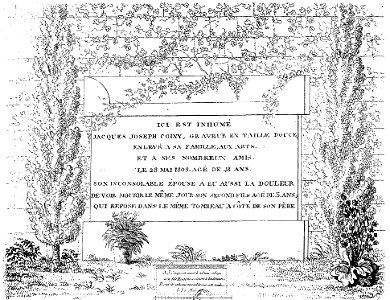 ICI EST INHUMÉ
JACQUES JOSEPH COINY, GRAVEUR EN TAILLE DOUCE
ENLEVÉ A SA FAMILLE, AUX ARTS.
ET A SES NOMBREUX AMIS.
LE 28 MAI 1809. AGÉ DE ANS.
SON INCONSOLABLE ÉPOUSE A EU AUSSI LA DOULEUR
DE VOIR MOURIR LE MÊME JOUR SON SECOND FILS AGÉ DE 5 ANS,
QUI REPOSE DANS LE MÊME TOMBEAU A CÔTÉ DE SON PÈRE